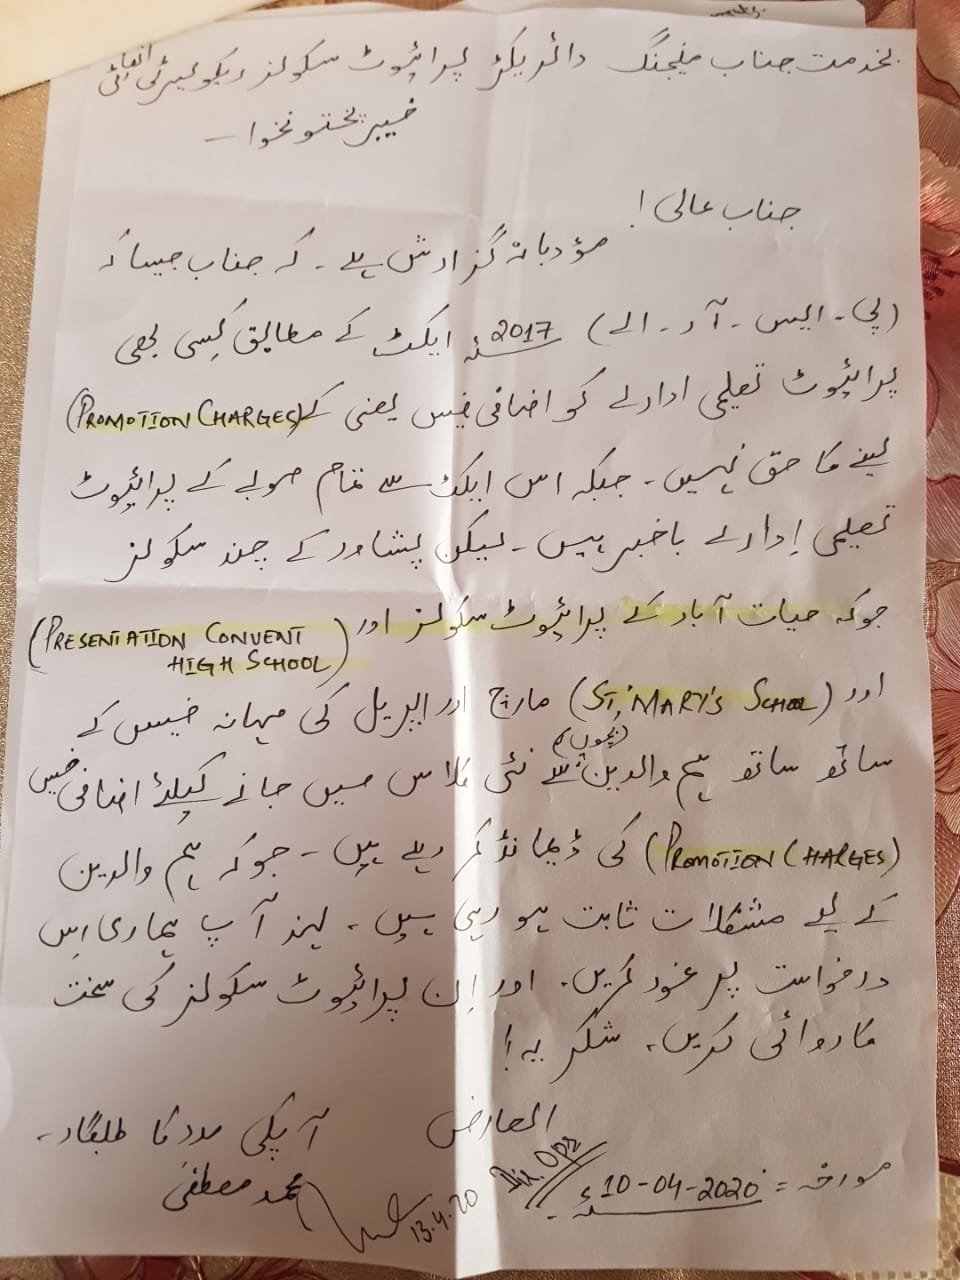 بخدمت جناب منیجنگ ڈائریکٹر پرائیوٹ سکولز ریگولیرٹی اتھارٹی
خیبر پختونخوا ــ
جناب عالی!
مؤدبانہ گزارش ہے ۔ کہ جناب جیسا کہ
(پی ۔ ایس ۔ آر ۔ اے) 2017ء ایکٹ کے مطابق کسی بھی
پرائیوٹ تعلمی ادارے کو اضافی فیس یعنی کے (PROMOTION CHARGES)
لینے کا حق نہیں ۔ جبکہ اس ایکٹ سے تمام صوبے کے پرائیوٹ
تعلمی إدارے باخبر ہیں ۔ لیکن پشاور کے چند سکولز
جوکہ حیات آباد کے پرائیوٹ سکولز اور (PRESENTATION CONVENT HIGH SCHOOL)
اور (ST, MARY'S SCHOOL) مارچ اور اپریل کی مہانہ فیس کے
ساتھ ساتھ ہم والدین سے (بچوں کا) نئی کلاس میں جانے کیلئے اضافی فیس
(PROMOTION CHARGES) کی ڈیمانڈ کر رہے ہیں ۔ جوکہ ہم والدین
کے لیے مشکلات ثابت ہو رہی ہیں ۔ لہذ آپ ہماری اِس
درخواست پر غور کریں۔ اور اِن پرائیوٹ سکولز کی سخت
کاروائی کریں۔ شکریہ!
العارض
آپکی مدد کا طلبگار۔
محمد مصطفیٰ
مورخہ = 10-04-2020ء
Dir. Opr
13.4.20